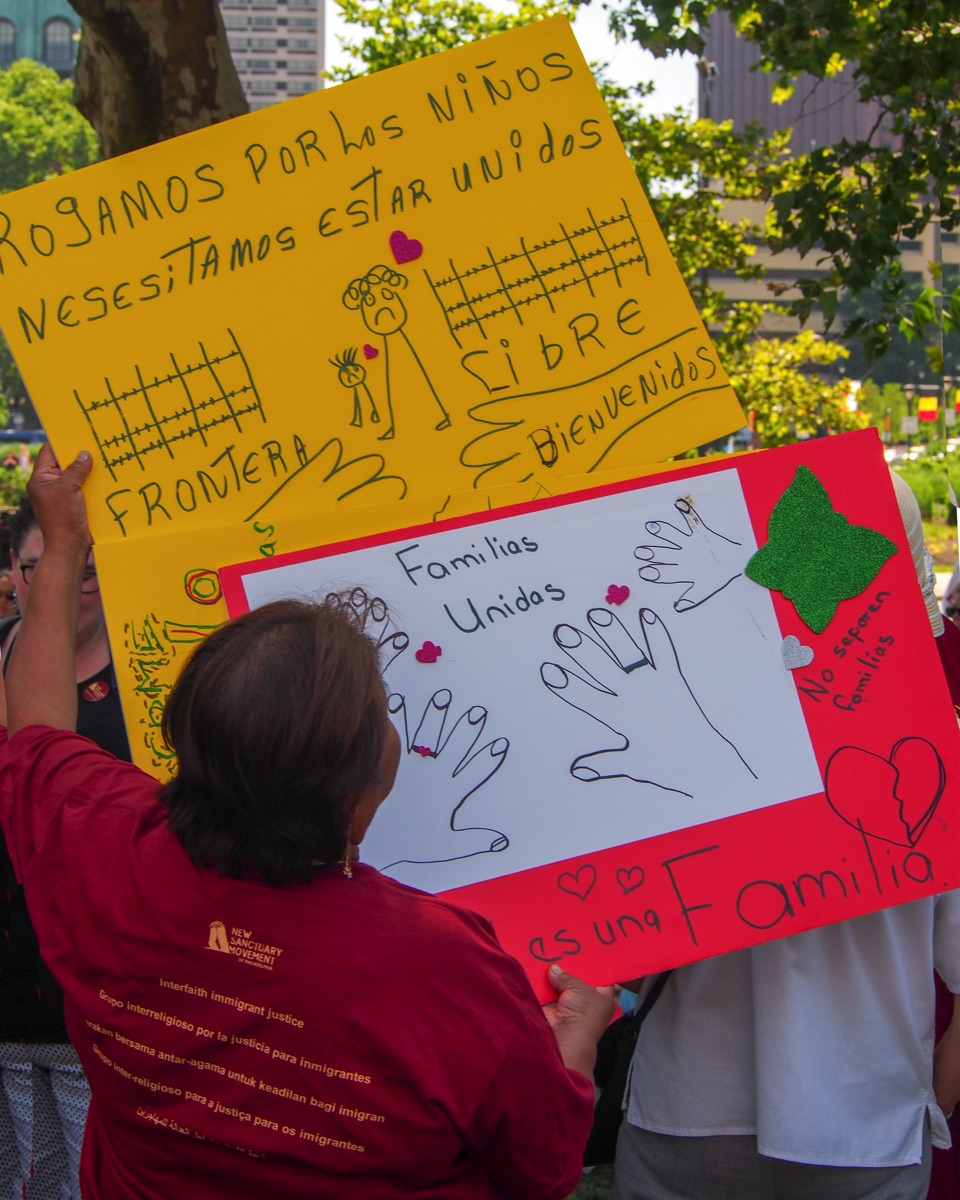 ROGAMOS POR LOS NIÑOS
NESESiTAMOS ESTAR UNIDOS
SIBRE
BIENVENIDOS
FRONTERA
Familias
Unidas
No separen
familias
es una Familia.
NEW
SANCTUARY
MOVEMENT
OF PHILADELPHIA
Interfaith immigrant justice
Grupo interreligioso por la justicia para inmigrantes
bersama antar-agama untuk keadilan bagi imigran
Grupo inter-religioso para a justiça para os imigrantes